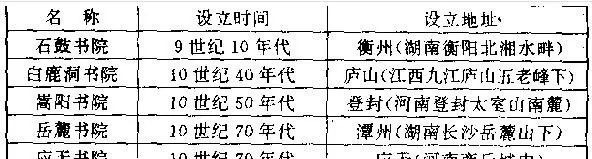 名 称 设立时间 设立地址
石鼓书院 9世纪10年代 衡州(湖南衡阳北湘水畔)
白鹿洞书院 10世纪40年代 庐山(江西九江庐山五老峰下)
嵩阳书院 10世纪50年代 登封(河南登封太室山南麓)
岳麓书院 10世纪70年代 潭州(湖南长沙岳麓山下)